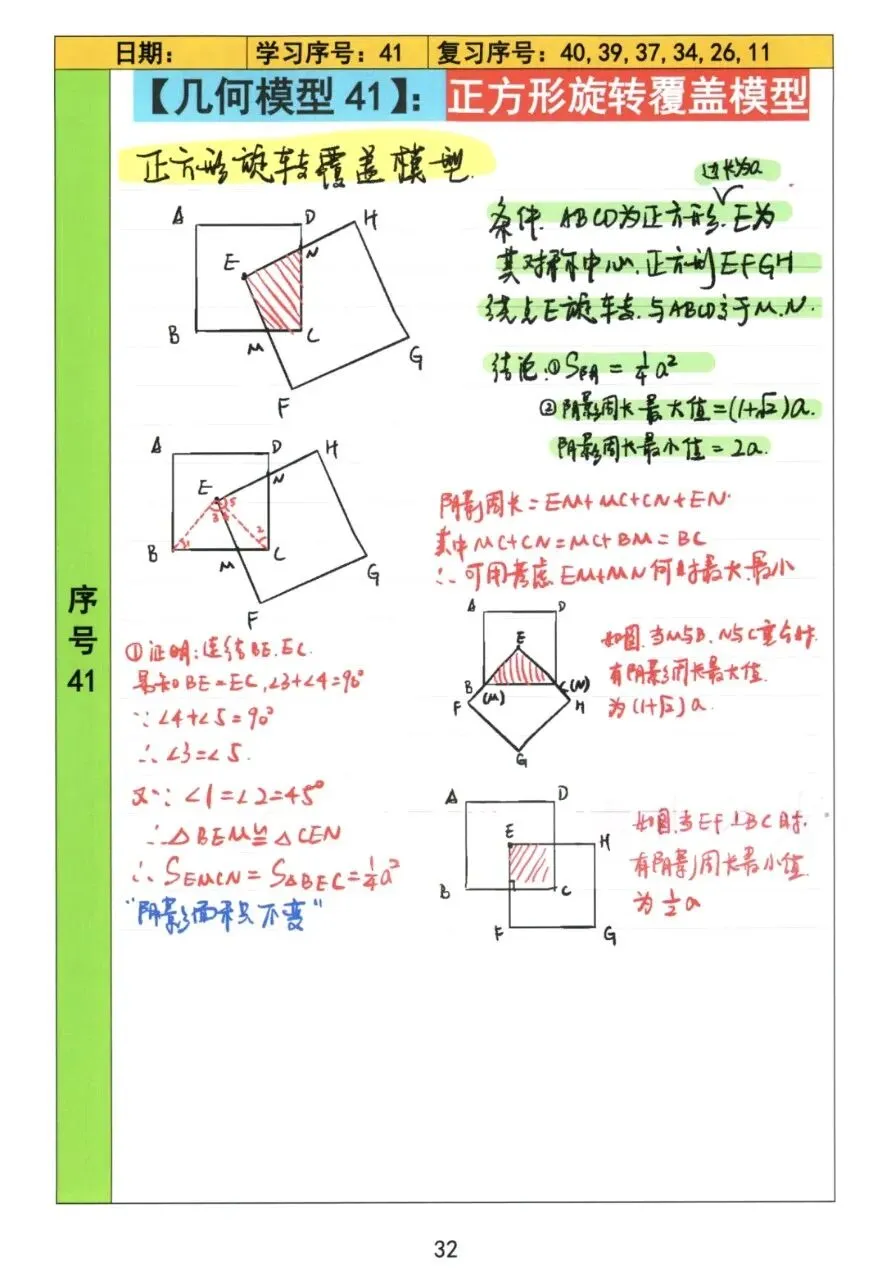 日期： 学习序号：41 复习序号：40,39,37,34,26,11
【几何模型 41】：正方形旋转覆盖模型
序号41
正方形旋转覆盖模型.
边长为a
条件. ABCD为正方形. E为
其对称中心. 正方形EFGH
绕点E旋转. 与ABCD交于M.N.
结论:①S阴 = 1/4 a²
②阴影周长最大值=(1+√2)a.
阴影周长最小值=2a.
A D H
E N
B M C G
F
A D H
E N
5 4 3
B 1 2 C
M G
F
阴影周长=EM+MC+CN+EN.
其中MC+CN=MC+BM=BC
∴可用考虑EM+MN何时最大.最小
A D
E
B (M) C(N)
F H
G
如图.当M与B.N与C重合时.
有阴影周长最大值.
为(1+√2)a.
①证明:连结BE.EC.
易知BE=EC,∠3+∠4=90°
∵∠4+∠5=90°
∴∠3=∠5.
又∵∠1=∠2=45°
∴△BEM≌△CEN
∴SEMCN=S△BEC=1/4 a²
“阴影面积不变”
A D
E H
B C
F G
如图.当EF⊥BC时.
有阴影周长最小值.
为1/2 a
32